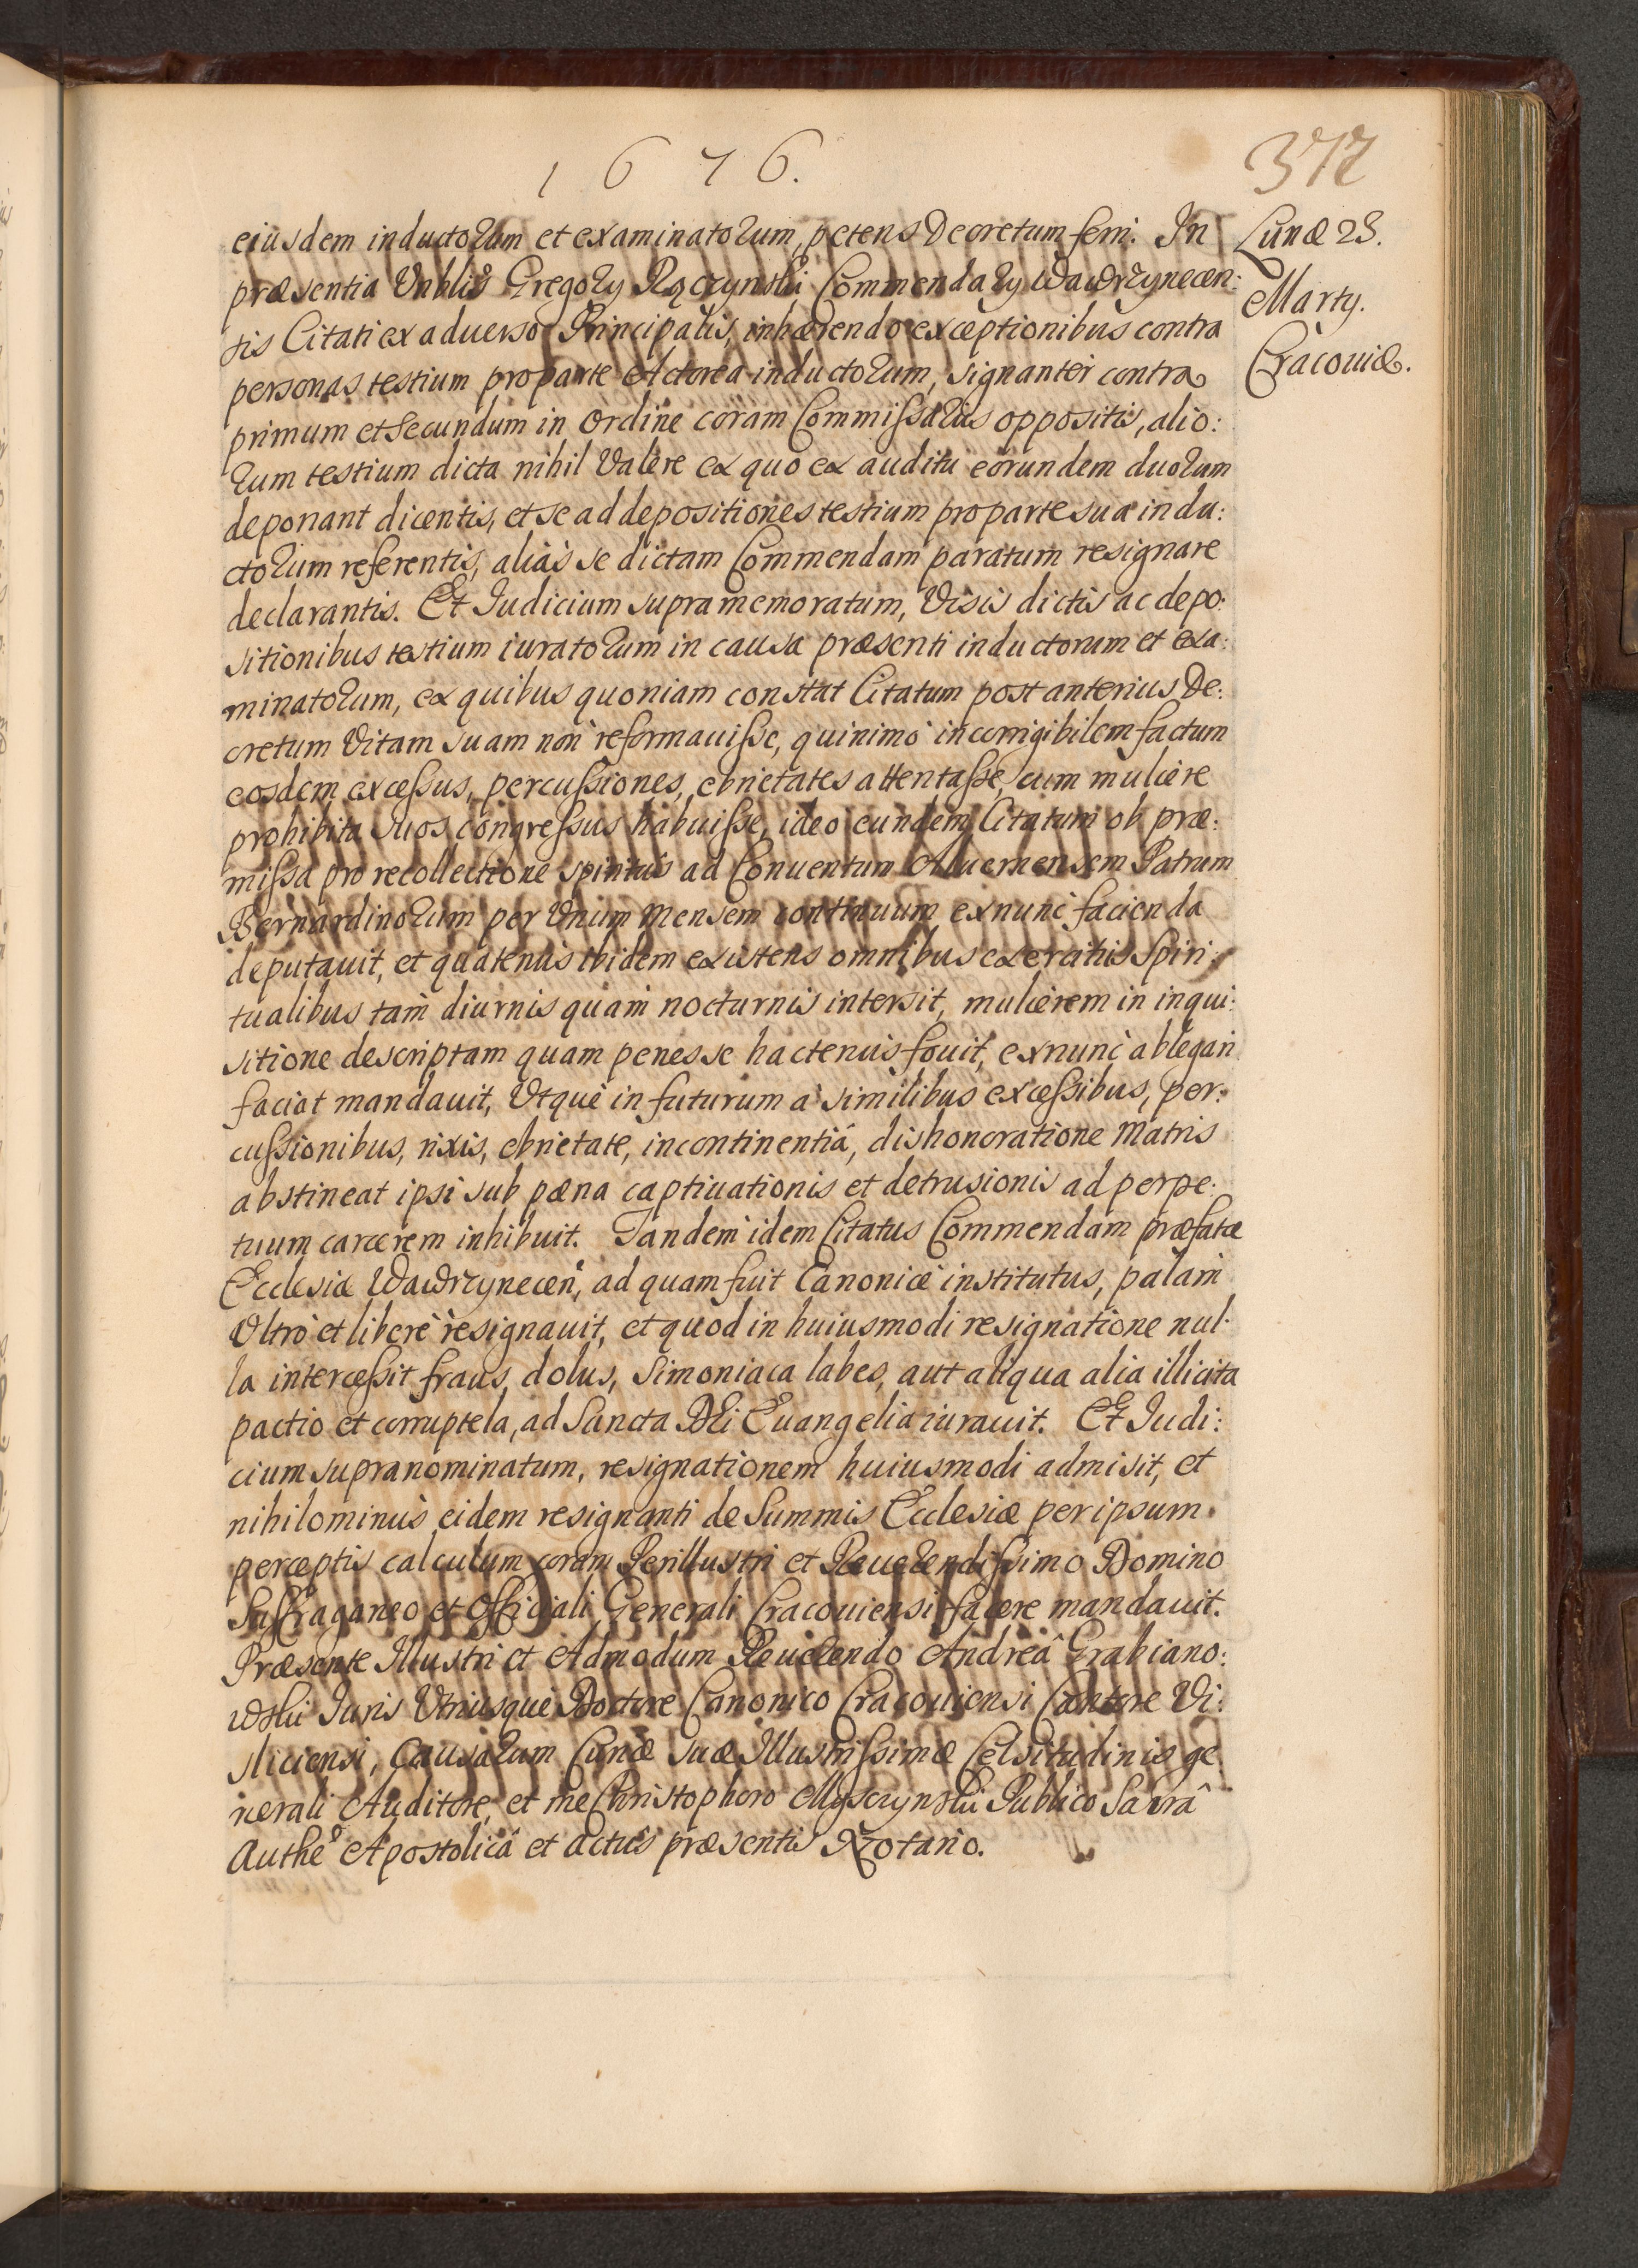 1676.
377
eiusdem inductorum et examinatorum, petens Decretum ferri. In
præsentia Vnblis Gregory Rączynski Commendary Wawrzynecen:
tis Citati ex aduerso Principalis, inhærendo exceptionibus contra
personas testium pro parte Actorea inductorum, signanter contra
primum et secundum in ordine coram Commissarÿs oppositis, alio:
rum testium dicta nihil Valere ex quo ex auditu eorundem duorum
deponant dicentis, et se ad depositiones testium pro parte sua indu:
ctorum referentis, aliàs se dictam Commendam paratum resignare
declarantis. Et Iudicium supramemoratum, Visis dictis ac depo:
sitionibus testium iuratorum in causa præsenti inductorum et exa:
minatorum, ex quibus quoniam constat Citatum post anterius De:
cretum Vitam suam non reformauisse, quinimò incorrigibilem factum
eosdem excessus, percussiones, ebrietates attentasse, cum muliere
prohibita suos congressus habuisse, ideo eundem Citatum ob præ:
missa pro recollectione spiritus ad Conuentum Aluernensem Patrum
Bernardinorum per Vnum Mensem continuum ex nunc facienda
deputauit, et quatenus ibidem existens omnibus exercitÿs Spiri:
tualibus tam diurnis quam nocturnis intersit, mulierem in inqui:
sitione descriptam quam penes se hactenus fouit, ex nunc ablegari
faciat mandauit, Vtque in futurum à similibus excessibus, per:
cussionibus, rixis, ebrietate, incontinentiâ, dishonoratione Matris
abstineat ipsi sub pæna captiuationis et detrusionis ad perpe:
tuum carcerem inhibuit. Tandem idem Citatus Commendam præfatæ
Ecclesiæ Wawrzynecen, ad quam fuit Canonicè institutus, palam
Vltrò et liberè resignauit, et quod in huiusmodi resignatione nul:
la intercessit fraus, dolus, simoniaca labes, aut aliqua alia illicita
pactio et corruptela, ad Sancta DEi Euangelia iurauit. Et Iudi:
cium supranominatum, resignationem huiusmodi admisit, et
nihilominus eidem resignanti de Summis Ecclesiæ per ipsum
perceptis calculum coram Perillustri et Reuerendissimo Domino
Suffraganeo et Officiali Generali Cracouiensi facere mandauit.
Præsente Illustri et Admodum Reuerendo Andreâ Grabiano:
wski Iuris Vtriusque Doctore Canonico Cracouiensi Cantore Vi:
sliciensi, Causarum Curiæ suæ Illustrissimæ Celsitudinis ge
nerali Auditore, et me Christophoro Myszynski Publico Sacrâ
Authe Apostolicâ et actus præsentis Notario.
Lunæ 23.
Marty.
Cracouiæ.